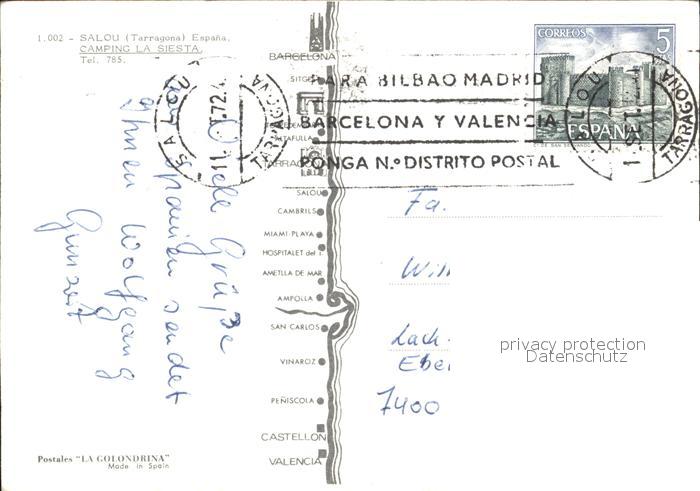 1.002 - SALOU (Tarragona) España.
CAMPING LA SIESTA.
Tel. 785.
BARCELONA
SITGES
ALTAFULLA
TARRAGONA
SALOU
CAMBRILS
MIAMI-PLAYA
HOSPITALET del I.
AMETLLA DE MAR
AMPOLLA
SAN CARLOS
VINAROZ
PEÑISCOLA
CASTELLON
VALENCIA
CORREOS
5
ESPAÑA
PARA BILBAO MADRID
BARCELONA Y VALENCIA
PONGA N.º DISTRITO POSTAL
SALOU
TARRAGONA
SALOU
TARRAGONA
Viele Grüße
aus Spanien sendet
Ihnen Wolfgang
Fa.
7400
privacy protection
Datenschutz
Postales "LA GOLONDRINA"
Made in Spain